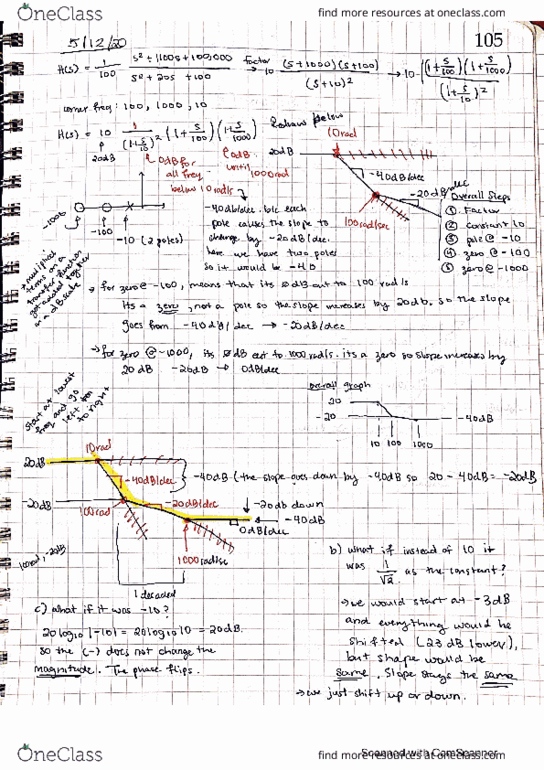 OneClass
find more resources at oneclass.com
5/12/20
105
H(s) = 1/100 s² + 1100s + 100,000 / s² + 20s + 100 factor → 10 (s + 1000)(s + 100) / (s + 10)² → 10 (1 + s/100)(1 + s/1000) / (1 + s/10)²
corner freq: 100, 1000, 10
H(s) = 10 1/(1 + s/10)² (1 + s/100)(1 + s/1000) Redraw below
20dB
0dB for all freq below 10 rad/s
0dB until 1000rad
20dB
10rad
-40dB/dec
-20dB/dec
100rad/sec
-1000
-100
-10 (2 poles)
-40db/dec. b/c each
pole causes the slope to
change by -20dB/dec.
here we have two poles
so it would be -40
Overall Steps
① Factor
② constant 10
③ pole @ -10
④ zero @ -100
⑤ zero @ -1000
terms on a
transfer function
get added together
on a dB scale
→ for zero @ -100, means that its 0dB out to 100 rad/s
Its a zero, not a pole so the slope increases by 20db. so the slope
goes from -40dB/dec → -20dB/dec
→ for zero @ -1000, its 0dB out to 1000 rad/s. its a zero so slope increases by
20 dB -20dB → 0dB/dec
start at lowest
freq and go
left then
to right
overall graph
20
-20
-40dB
10 100 1000
10rad
20dB
-40dB/dec
-40dB (the slope goes down by -40dB so 20 - 40dB = -20dB
-20dB
100rad
-20dB/dec
-20db down
-40dB
0dB/dec
1000rad/sec
100rad, -20dB
1 decade
b) what if instead of 10 it
was 1/√2 as the constant?
→ we would start at -3dB
and everything would be
shifted (23 dB lower),
but shape would be
same. Slope stays the same
→ we just shift up or down.
c) what if it was -10?
20log10 |-10| = 20log10 10 = 20dB.
so the (-) does not change the
magnitude. The phase flips.
OneClass
Scanned with CamScanner
find more resources at oneclass.com